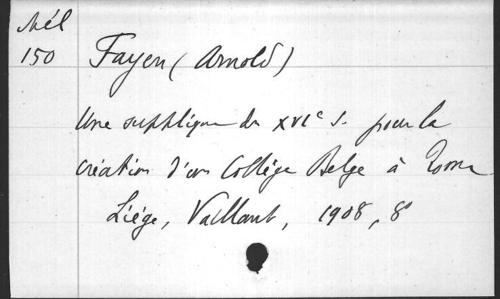 Mél
150
Fayen (Arnold)
Une supplique du XVIe s. pour la
création d'un Collège Belge à Rome
Liége, Vaillant, 1908, 8°